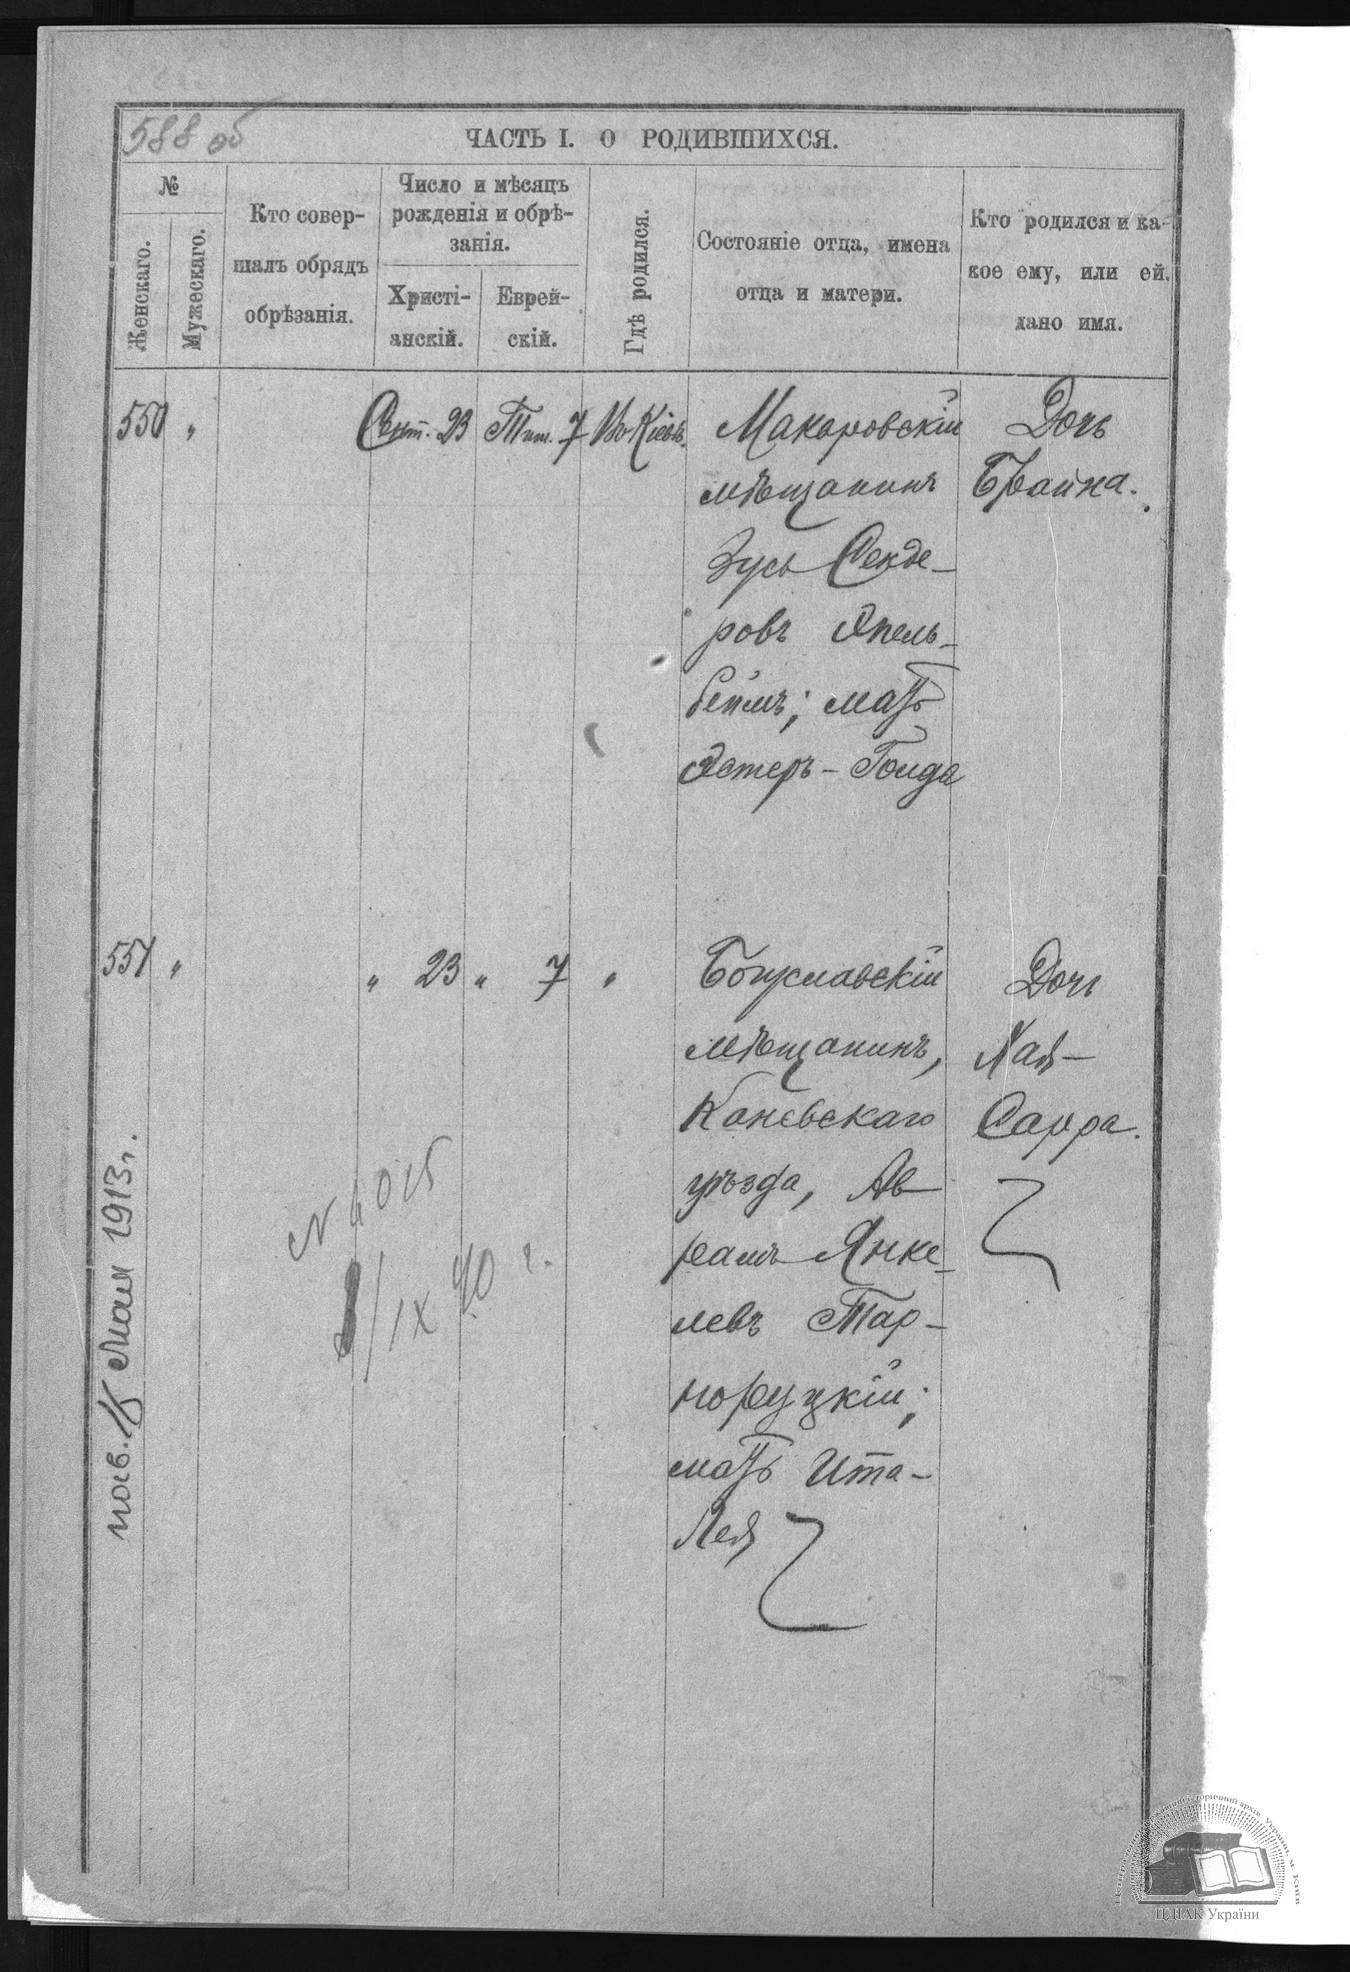 588 об
ЧАСТЬ I. О РОДИВШИХСЯ.
№
Женскаго.
Мужескаго.
Кто совер-
шалъ обрядъ
обрѣзанія.
Число и мѣсяцъ
рожденія и обрѣ-
занія.
Христі-
анскій.
Еврей-
скій.
Гдѣ родился.
Состояніе отца, имена
отца и матери.
Кто родился и ка-
кое ему, или ей.
дано имя.
550 „ Сент. 23 Тиш. 7 Въ Кіевѣ.
Макаровскій
мѣщанинъ
Зусь Сенде-
ровъ Апель-
беймъ; мать
Эстеръ-Голда
Дочь
Брайна.
551 „ „ 23 „ 7 „
Богуславскій
мѣщанинъ,
Каневскаго
уѣзда, Ав-
рамъ Янке-
левъ Тар-
норуцкій;
мать Ита-
Лея
Дочь
Хая-
Сарра.
Мая 1913 г.
/IX 40 г.
ЦДІАК України